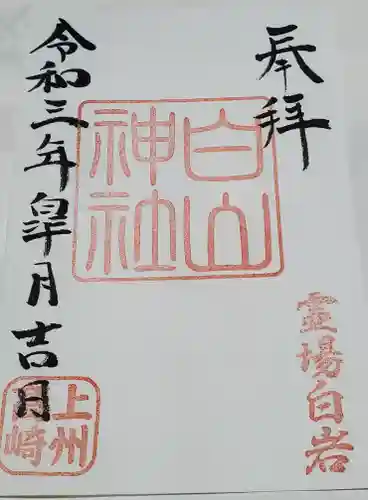 奉拝
白山
神社
霊場白岩
令和三年皐月吉日
上州
崎